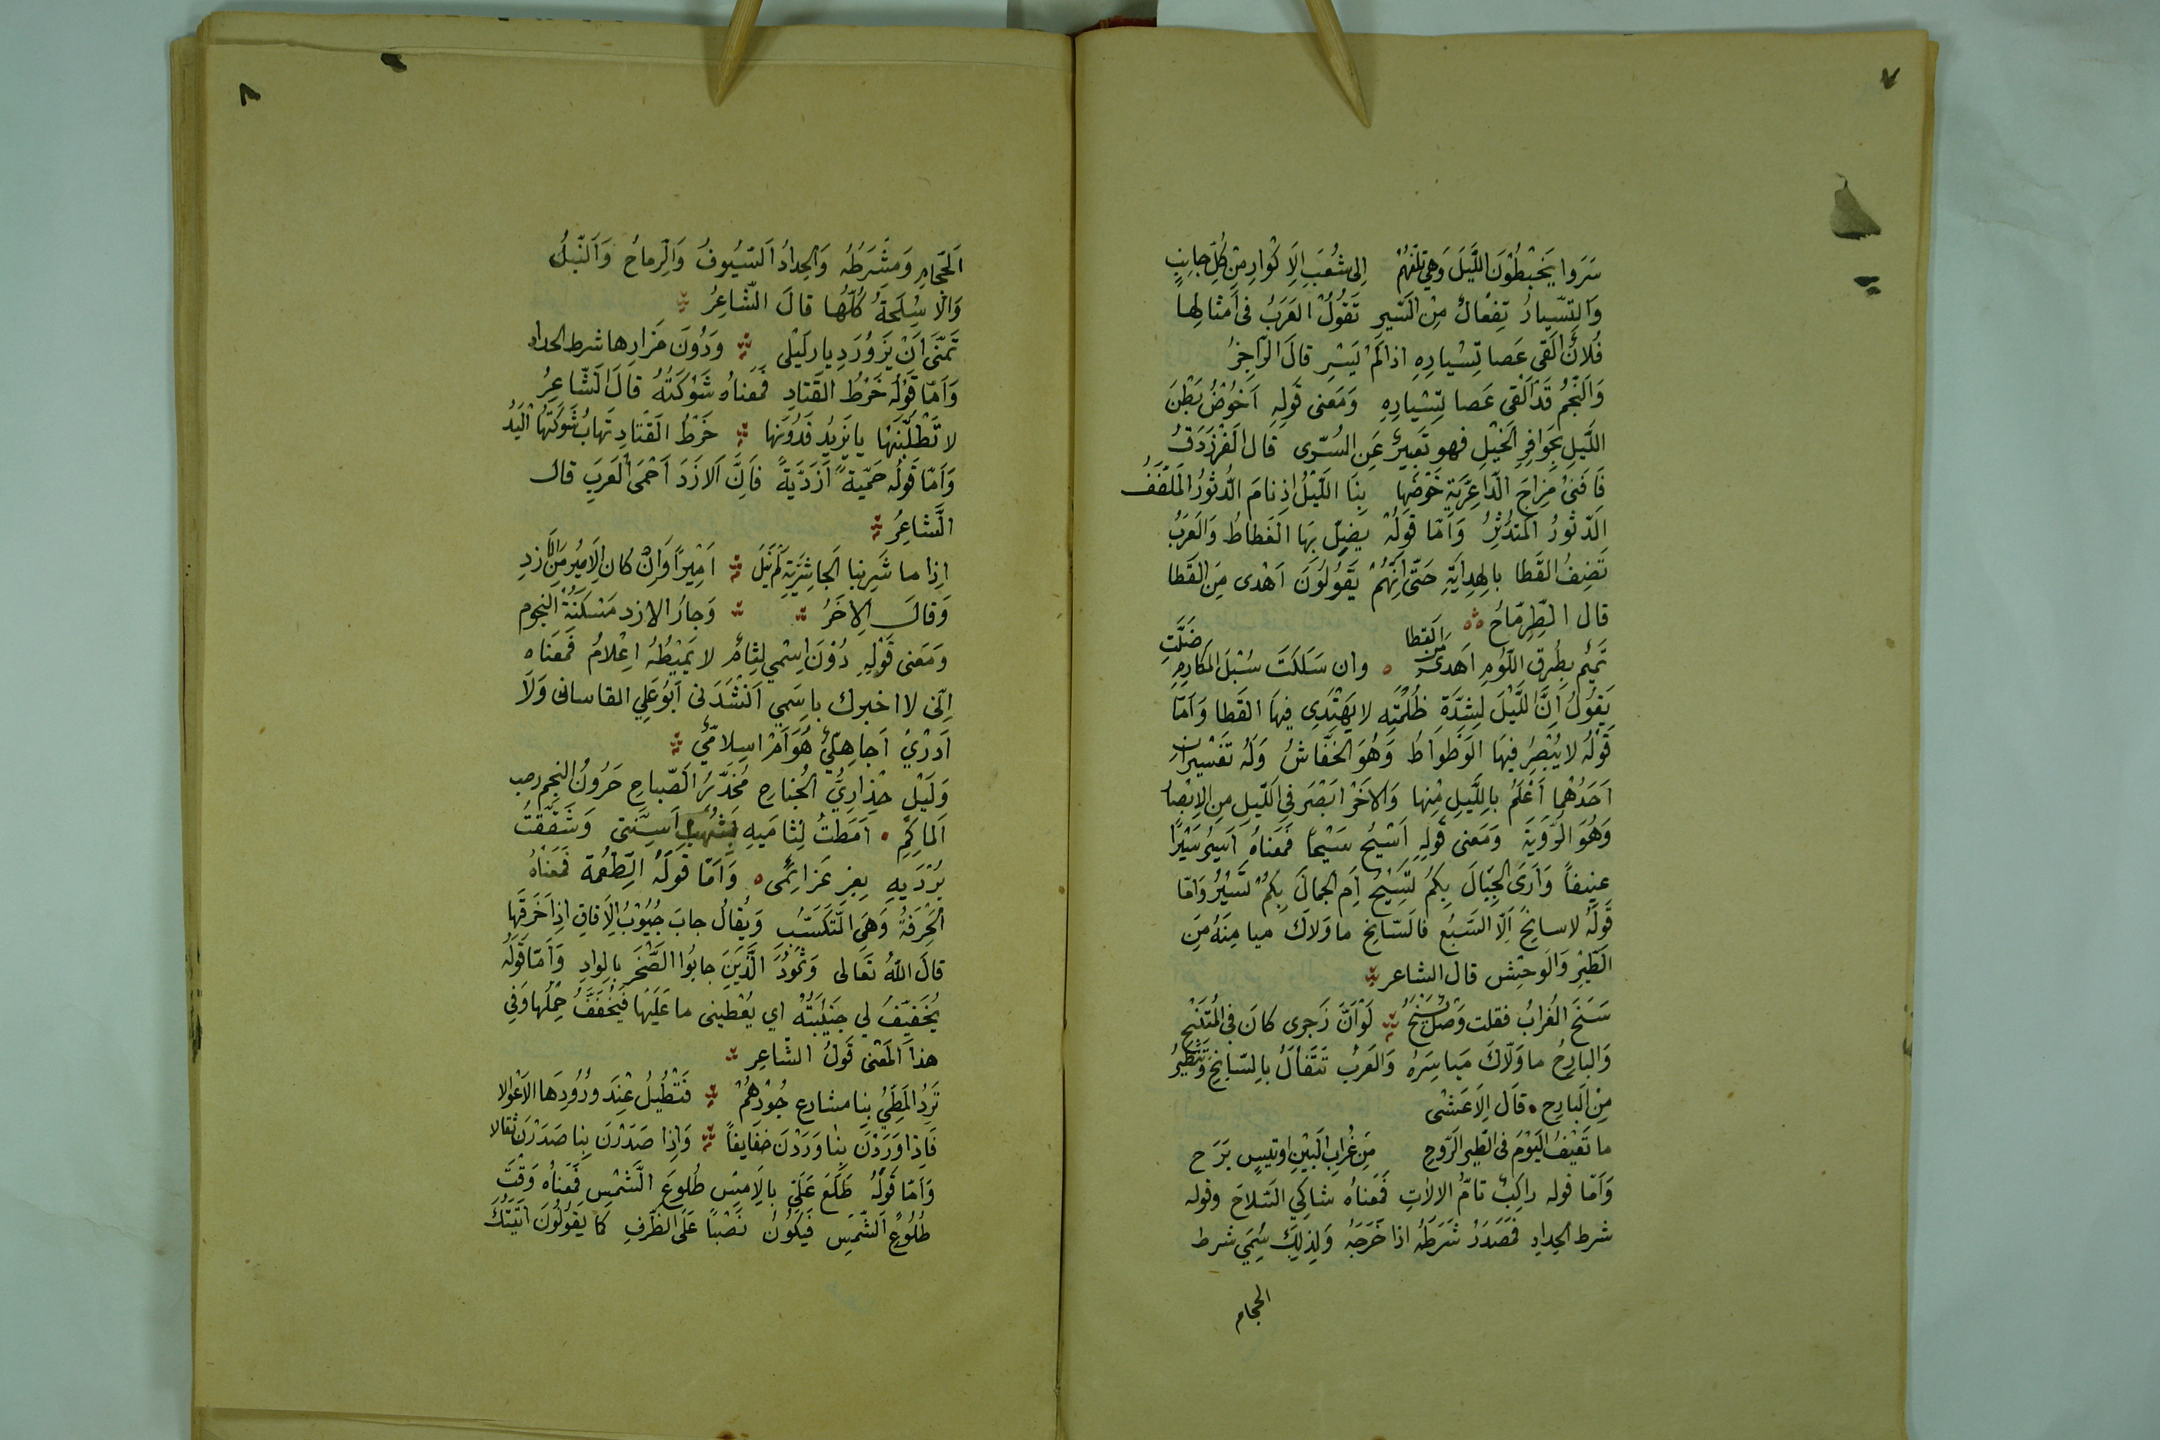 ٧
سَرَوا يَخبِطُونَ اللَّيلَ وَهِيَ تَلُفُّهُمْ إلى شُعَبِ الأكْوارِ مِنْ كُلِّ جانِبٍ
وَالتَّسْيارُ تَفْعالٌ مِنَ السَّيرِ تَقُولُ العَرَبُ فى أمثالِها
فُلانٌ ألقى عَصا تَسْيارِهِ اذا لَمْ يَسْرِ قالَ الرّاجِزُ
وَالنَّجْمُ قَدْ ألقى عَصا تَسْيارِهِ وَمَعنى قَولِهِ أخُوضُ بَطْنَ
اللَّيلِ بِحَوافِرِ الخَيْلِ فهو تَعبِيرٌ عَنِ السُّرى قال الفَرَزْدَقُ
فَافَنىْ مِزاجَ الدّاعِرِيَّةِ خَوْضُها بِنَا اللَّيْلُ اذ نامَ الدَّثُورُ المُلَفَّفُ
الدَّثُورُ المُتَدَثِّرُ وَأمّا قَولُهُ يَضِلُّ بِهَا الغَطاطُ وَالعَرَبُ
تَصِفُ القَطا بالهِدايَةِ حَتّى انَّهُمْ يَقُولُونَ أهْدى مِنَ القَطا
قال الطِّرِمّاحُ
تَميمٌ بِطُرقِ اللُّؤمِ أهدى مِنَ القَطا وان سَلَكَتْ سُبْلَ المَكارِمِ ضَلَّتِ
يَقُولُ انَّ اللَّيْلَ لِشِدَّةِ ظُلمَتِهِ لا يَهْتَدِى فيهَا القَطا وَأمّا
قَولُهُ لا يُبْصِرُ فيهَا الوَطْواطُ وَهُوَ الخُفّاشُ وَلَهُ تَفْسيرانِ
احَدُهُما أعْلَمُ بِاللَّيلِ مِنها وَالاخَرُ ابْصَرَ فِى اللَّيلِ مِنَ الابْصا
وَهُوَ الرُّؤيَةَ وَمَعنى قَولِهِ اسْيحُ سَيْحًا فَمَعناهُ اسيرُ سَيْرًا
عَنيفاً وَأرَى الجِبَالَ بِكُمْ تَسيحُ اَمِ الجِمالَ بِكُمْ تَسيرُ وَأمّا
قَولُهُ لا سانِحَ اَلّا السَّبُعَ فالسّانِحُ ما وَلاكَ ميا مِنَهُ مِنَ
الطَّيْرِ وَالوَحْشِ قال الشاعر
سَنَحَ الغُرابُ فقلت وَصْلٌ سَنَحْ لَوْ أنَّ زَجرى كانَ فى المُتَنَحِ
وَالبارِحُ ما وَلّاكَ مَياسِرَهُ وَالعَرَبُ تَتَفَألُ بِالسّانِحِ وَتَتَطَيَّرُ
مِنَ البارِحِ قالَ الأعْشى
ما تَعيفُ اليَوْمَ فى الطَّيرِ الرَّوَحِ مِنْ غُرابِ البَيْنِ أو تَيسٍ بَرَح
وَأمّا قوله راكِبٌ تامُّ الالاتِ فَمَعناهُ شاكي السِّلاحِ وقوله
شرط الحِدادِ فَمَصْدَرُ شَرَطَهُ اذا جَرَحَهُ وَلِذلِكَ سُمِّيَ شرط
الحجام
٨
الحَجّامِ وَمِشْرَطُهُ وَالحِدادُ السُّيُوفُ وَالرِّماحُ وَالنَّبلُ
وَالاسْلِحَةُ كُلُّها قالَ الشّاعِرُ
تَمَنّى أنْ يَزُورَ دِيارَ لَيْلى وَدُونَ مَزارِها شرط الحداد
وَأمّا قَولُهُ خَرْطُ القَتادِ فَمَعناهُ شَوْكَتُهُ قالَ الشّاعِرُ
لا تَطْلُبَنَّها يا يَزيدُ فَدُونَها خَرْطُ القَتادِ تَهابُ شَوكَتَها اليَدُ
وَأمّا قَولُهُ حَمِيَّةً أزْدِيَّةً فَانَّ الازْدَ أحْمَى العَرَبِ قال
الشّاعِرُ
اذا ما شَرِبنا الجاشِرِيَّةَ لَمْ نُبَلْ امِيراً وَانْ كانَ الأمِيرُ مِنَ الأزدِ
وَقالَ الاخَرُ وَجارُ الازد مَسْكَنُهُ النجوم
وَمَعنى قَوْلِهِ دُوْنَ اسْمي لِثامٌ لا يُمِيطُهُ اعْلامٌ فَمَعناه
اِنّى لا اخبرك باسمي أنشَدَنى أبُو عَلِي القاسانى وَلا
أدْرِي أجاهِلِيٌّ هُوَ أمْ اسلامِيٌّ
وَلَيْلٍ حِذارِيُّ الجُناحِ مُخَدَّرُ الصَّباحِ حَرُونُ النجمِ رحب
المآكِمِ أمَطْتُ لِثامَيهِ بِشُهبِ أسِنَّتى وَشَقَّقْتُ
بُرْدَيهِ بِغِرِ عَزائِمى وَأمّا قَولُهُ الطُّعْمَة فَمَعناهُ
الحِرْفَةُ وَهِيَ المُتَكَسَّبُ وَيُقالُ جابَ جُيُوْبُ الآفاقِ اذا خَرَقَها
قالَ اللهُ تَعالى وَثَمُودَ الَّذينَ جابُوا الصَّخْرَ بِالوادِ وَأمّا قَولُهُ
يُخَفِّفُ لي جَنيبَتُهُ اي يُعْطينى ما عَلَيْها فَيُخَفِّفُ حِمْلَها وَفِى
هذا المَعْنى قَولُ الشّاعِرِ
تَرِدُ المَطِيُّ بِنا مشارعِ جُوْدِهُمْ فَتُطيلُ عِنْدَ وُرُودِهَا الاعْوالا
فَاذا وَرَدْنَ بِنا وَرَدْنَ خَفايفاً وَاِذا صَدَرْنَ بِنا صَدَرْنَ ثقالا
وَأمّا قَولُهُ طَلَعَ عَلَيَّ بالأمْسِ طُلُوعَ الشَّمْسِ فَمَعناهُ وَقْتَ
طُلُوعِ الشَّمسِ فَيَكُونُ نَصْباً عَلَى الظَّرفِ كما يَقُولُونَ أتَيْتُكَ